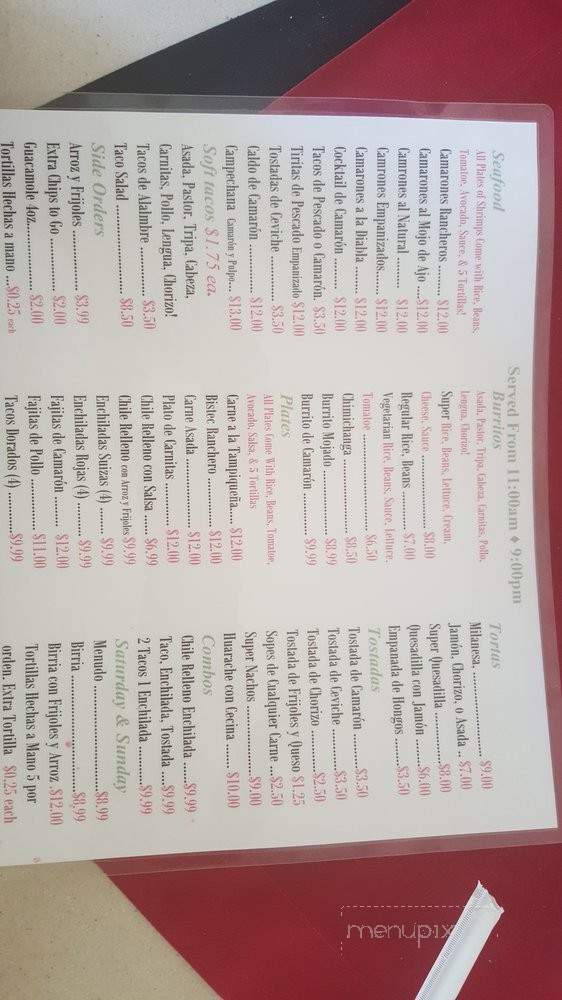 Served From 11:00am ♦ 9:00pm
Seafood
All Plates of Shrimps Come with Rice, Beans,
Tomatoe, Avocado, Sauce, & 5 Tortillas!
Camarones Rancheros ........ $12.00
Camarones al Mojo de Ajo ....$12.00
Camrones al Natural ........ $12.00
Camrones Empanizados........ $12.00
Camarones a la Diabla ....... $12.00
Cocktail de Camarón ......... $12.00
Tacos de Pescado o Camarón. $3.50
Tiritas de Pescado Empanizado $12.00
Tostadas de Ceviche .......... $3.50
Caldo de Camarón ........... $12.00
Campechana Camarón y Pulpo... $13.00
Soft tacos $1.75 ea.
Asada, Pastor, Tripa, Cabeza,
Carnitas, Pollo, Lengua, Chorizo!
Tacos de Alahmbre ............ $3.50
Taco Salad .................... $8.50
Side Orders
Arroz y Frijoles ............... $3.99
Extra Chips to Go ............. $2.00
Guacamole 4oz................ $2.00
Tortillas Hechas a mano ...$0.25 each
Burritos
Asada, Pastor, Tripa, Cabeza, Carnitas, Pollo,
Lengua, Chorizo!
Super Rice, Beans, Lettuce, Cream,
Cheese, Sauce ................. $8.00
Regular Rice, Beans ........... $7.00
Vegetarian Rice, Beans, Sauce, Lettuce,
Tomatoe ..................... $6.50
Chimichanga .................. $8.50
Burrito Mojado ................ $8.99
Burrito de Camarón ............ $9.99
Plates
All Plates Come With Rice, Beans, Tomatoe,
Avocado, Salsa, & 5 Tortillas
Carne a la Tampiqueña.... $12.00
Bistec Ranchero ............ $12.00
Carne Asada ............... $12.00
Plato de Carnitas ........... $12.00
Chile Relleno con Salsa ...... $6.99
Chile Relleno con Arroz y Frijoles $9.99
Enchiladas Suizas (4) ....... $9.99
Enchiladas Rojas (4) ........ $9.99
Fajitas de Camarón ........ $12.00
Fajitas de Pollo ............ $11.00
Tacos Dorados (4) ..........$9.99
Tortas
Milanesa. .................... $9.00
Jamón, Chorizo, o Asada .. $7.00
Super Quesadilla ........... $8.00
Quesadilla con Jamón ......$6.00
Empanada de Hongos ......$3.50
Tostadas
Tostada de Camarón .......$3.50
Tostada de Ceviche ........$3.50
Tostada de Chorizo .........$2.50
Tostada de Frijoles y Queso $1.25
Sopes de Cualquier Carne ...$2.50
Super Nachos ...............$9.00
Huarache con Cecina ....... $10.00
Combos
Chile Relleno Enchilada .....$9.99
Taco, Enchilada, Tostada ....$9.99
2 Tacos 1 Enchilada..........$9.99
Saturday & Sunday
Menudo .....................$8.99
Birria ........................$8.99
Birria con Frijoles y Arroz .$12.00
Tortillas Hechas a Mano 5 por
orden. Extra Tortilla $0.25 each
menupix